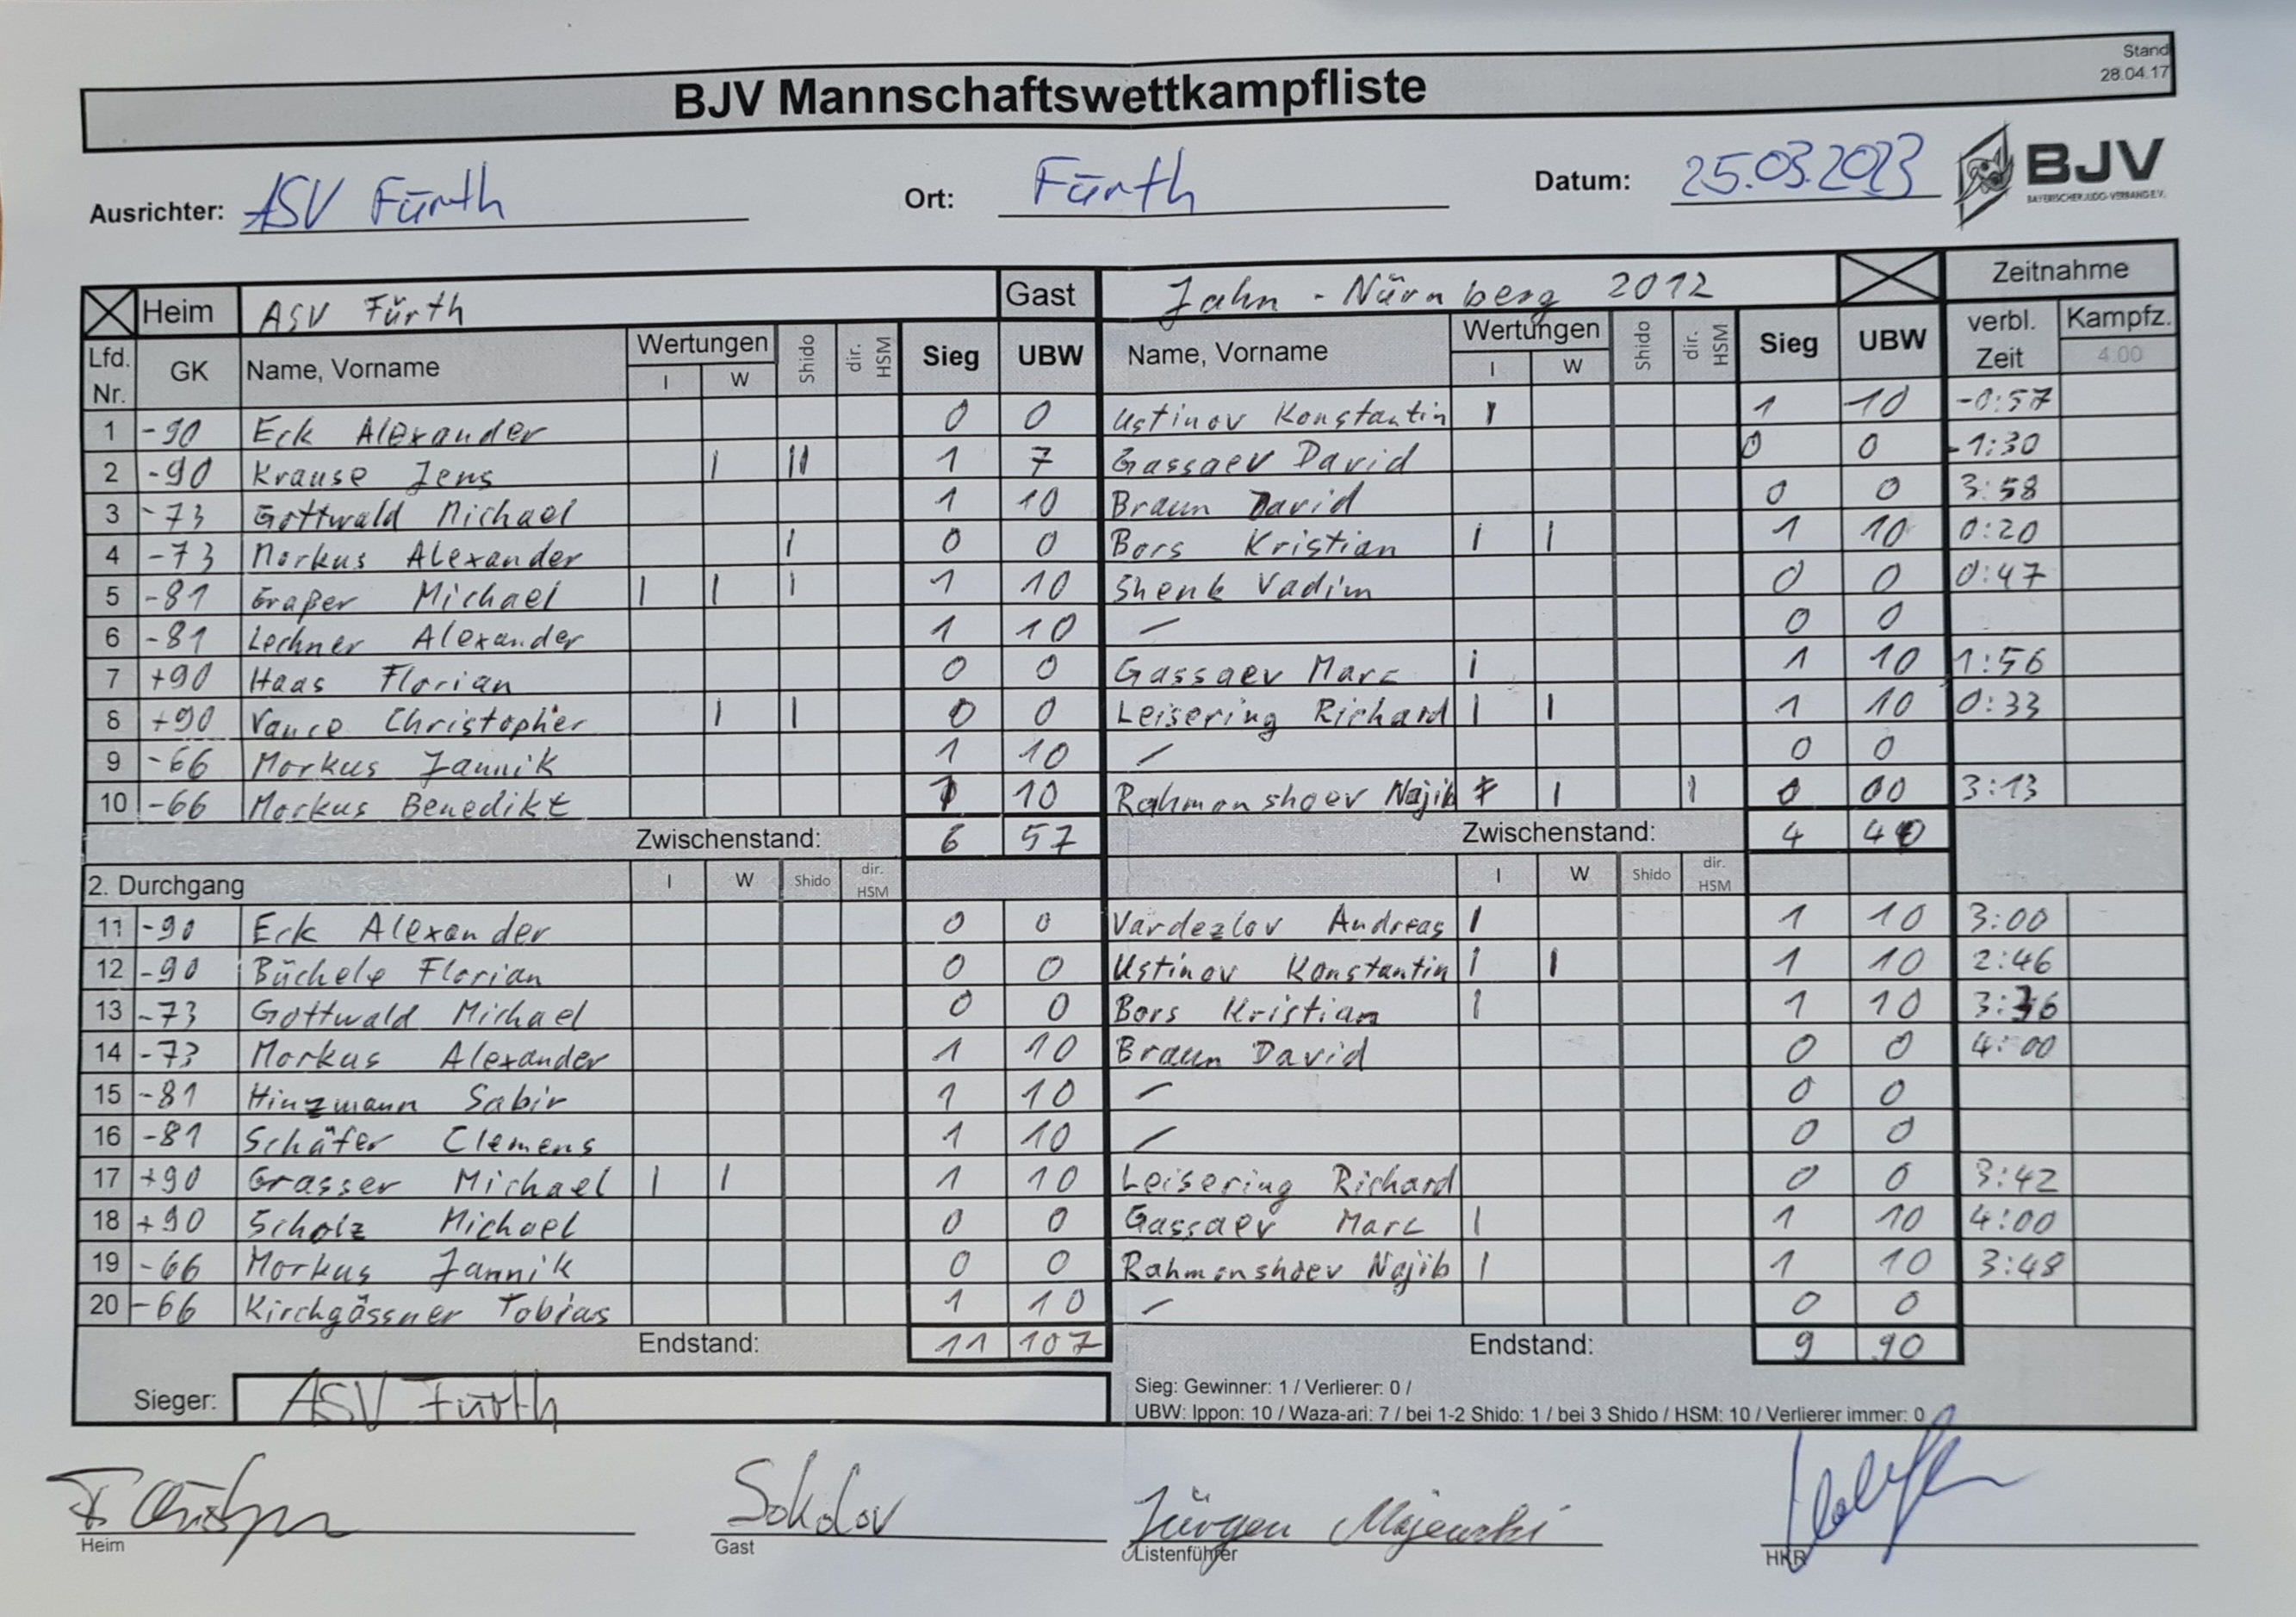 Stand
28.04.17
BJV Mannschaftswettkampfliste
Ausrichter: ASV Fürth Ort: Fürth Datum: 25.03.2023 BJV
BAYERISCHER JUDO-VERBAND E.V.
Heim ASV Fürth Gast Jahn - Nürnberg 2012 Zeitnahme
Lfd. Nr. GK Name, Vorname Wertungen I W Shido dir. HSM Sieg UBW Name, Vorname Wertungen I W Shido dir. HSM Sieg UBW verbl. Zeit Kampfz. 4.00
1 -90 Eck Alexander 0 0 Ustinov Konstantin I 1 10 -0:57
2 -90 Krause Jens I II 1 7 Gassaev David 0 0 -1:30
3 -73 Gottwald Michael 1 10 Braun David 0 0 3:58
4 -73 Morkus Alexander I 0 0 Bors Kristian I I 1 10 0:20
5 -81 Graßer Michael I I I 1 10 Shenk Vadim 0 0 0:47
6 -81 Lechner Alexander 1 10 – 0 0
7 +90 Haas Florian 0 0 Gassaev Marc I 1 10 1:56
8 +90 Vance Christopher I I 0 0 Leisering Richard I I 1 10 0:33
9 -66 Morkus Jannik 1 10 – 0 0
10 -66 Morkus Benedikt 1 10 Rahmonshoev Najib I I 0 00 3:13
Zwischenstand: 6 57 Zwischenstand: 4 40
2. Durchgang I W Shido dir. HSM I W Shido dir. HSM
11 -90 Eck Alexander 0 0 Vardezlov Andreas I 1 10 3:00
12 -90 Büchele Florian 0 0 Ustinov Konstantin I I 1 10 2:46
13 -73 Gottwald Michael 0 0 Bors Kristian I 1 10
14 -73 Morkus Alexander 1 10 Braun David 0 0 4:00
15 -81 Hinzmann Sabir 1 10 – 0 0
16 -81 Schäfer Clemens 1 10 – 0 0
17 +90 Grasser Michael I I 1 10 Leisering Richard 0 0 3:42
18 +90 Scholz Michael 0 0 Gassaev Marc I 1 10 4:00
19 -66 Morkus Jannik 0 0 Rahmonshoev Najib I 1 10 3:48
20 -66 Kirchgässner Tobias 1 10 – 0 0
Endstand: 11 107 Endstand: 9 90
Sieger: ASV Fürth
Sieg: Gewinner: 1 / Verlierer: 0 /
UBW: Ippon: 10 / Waza-ari: 7 / bei 1-2 Shido: 1 / bei 3 Shido / HSM: 10 / Verlierer immer: 0
Sokolov Jürgen Majewski
Heim Gast Listenführer HKR